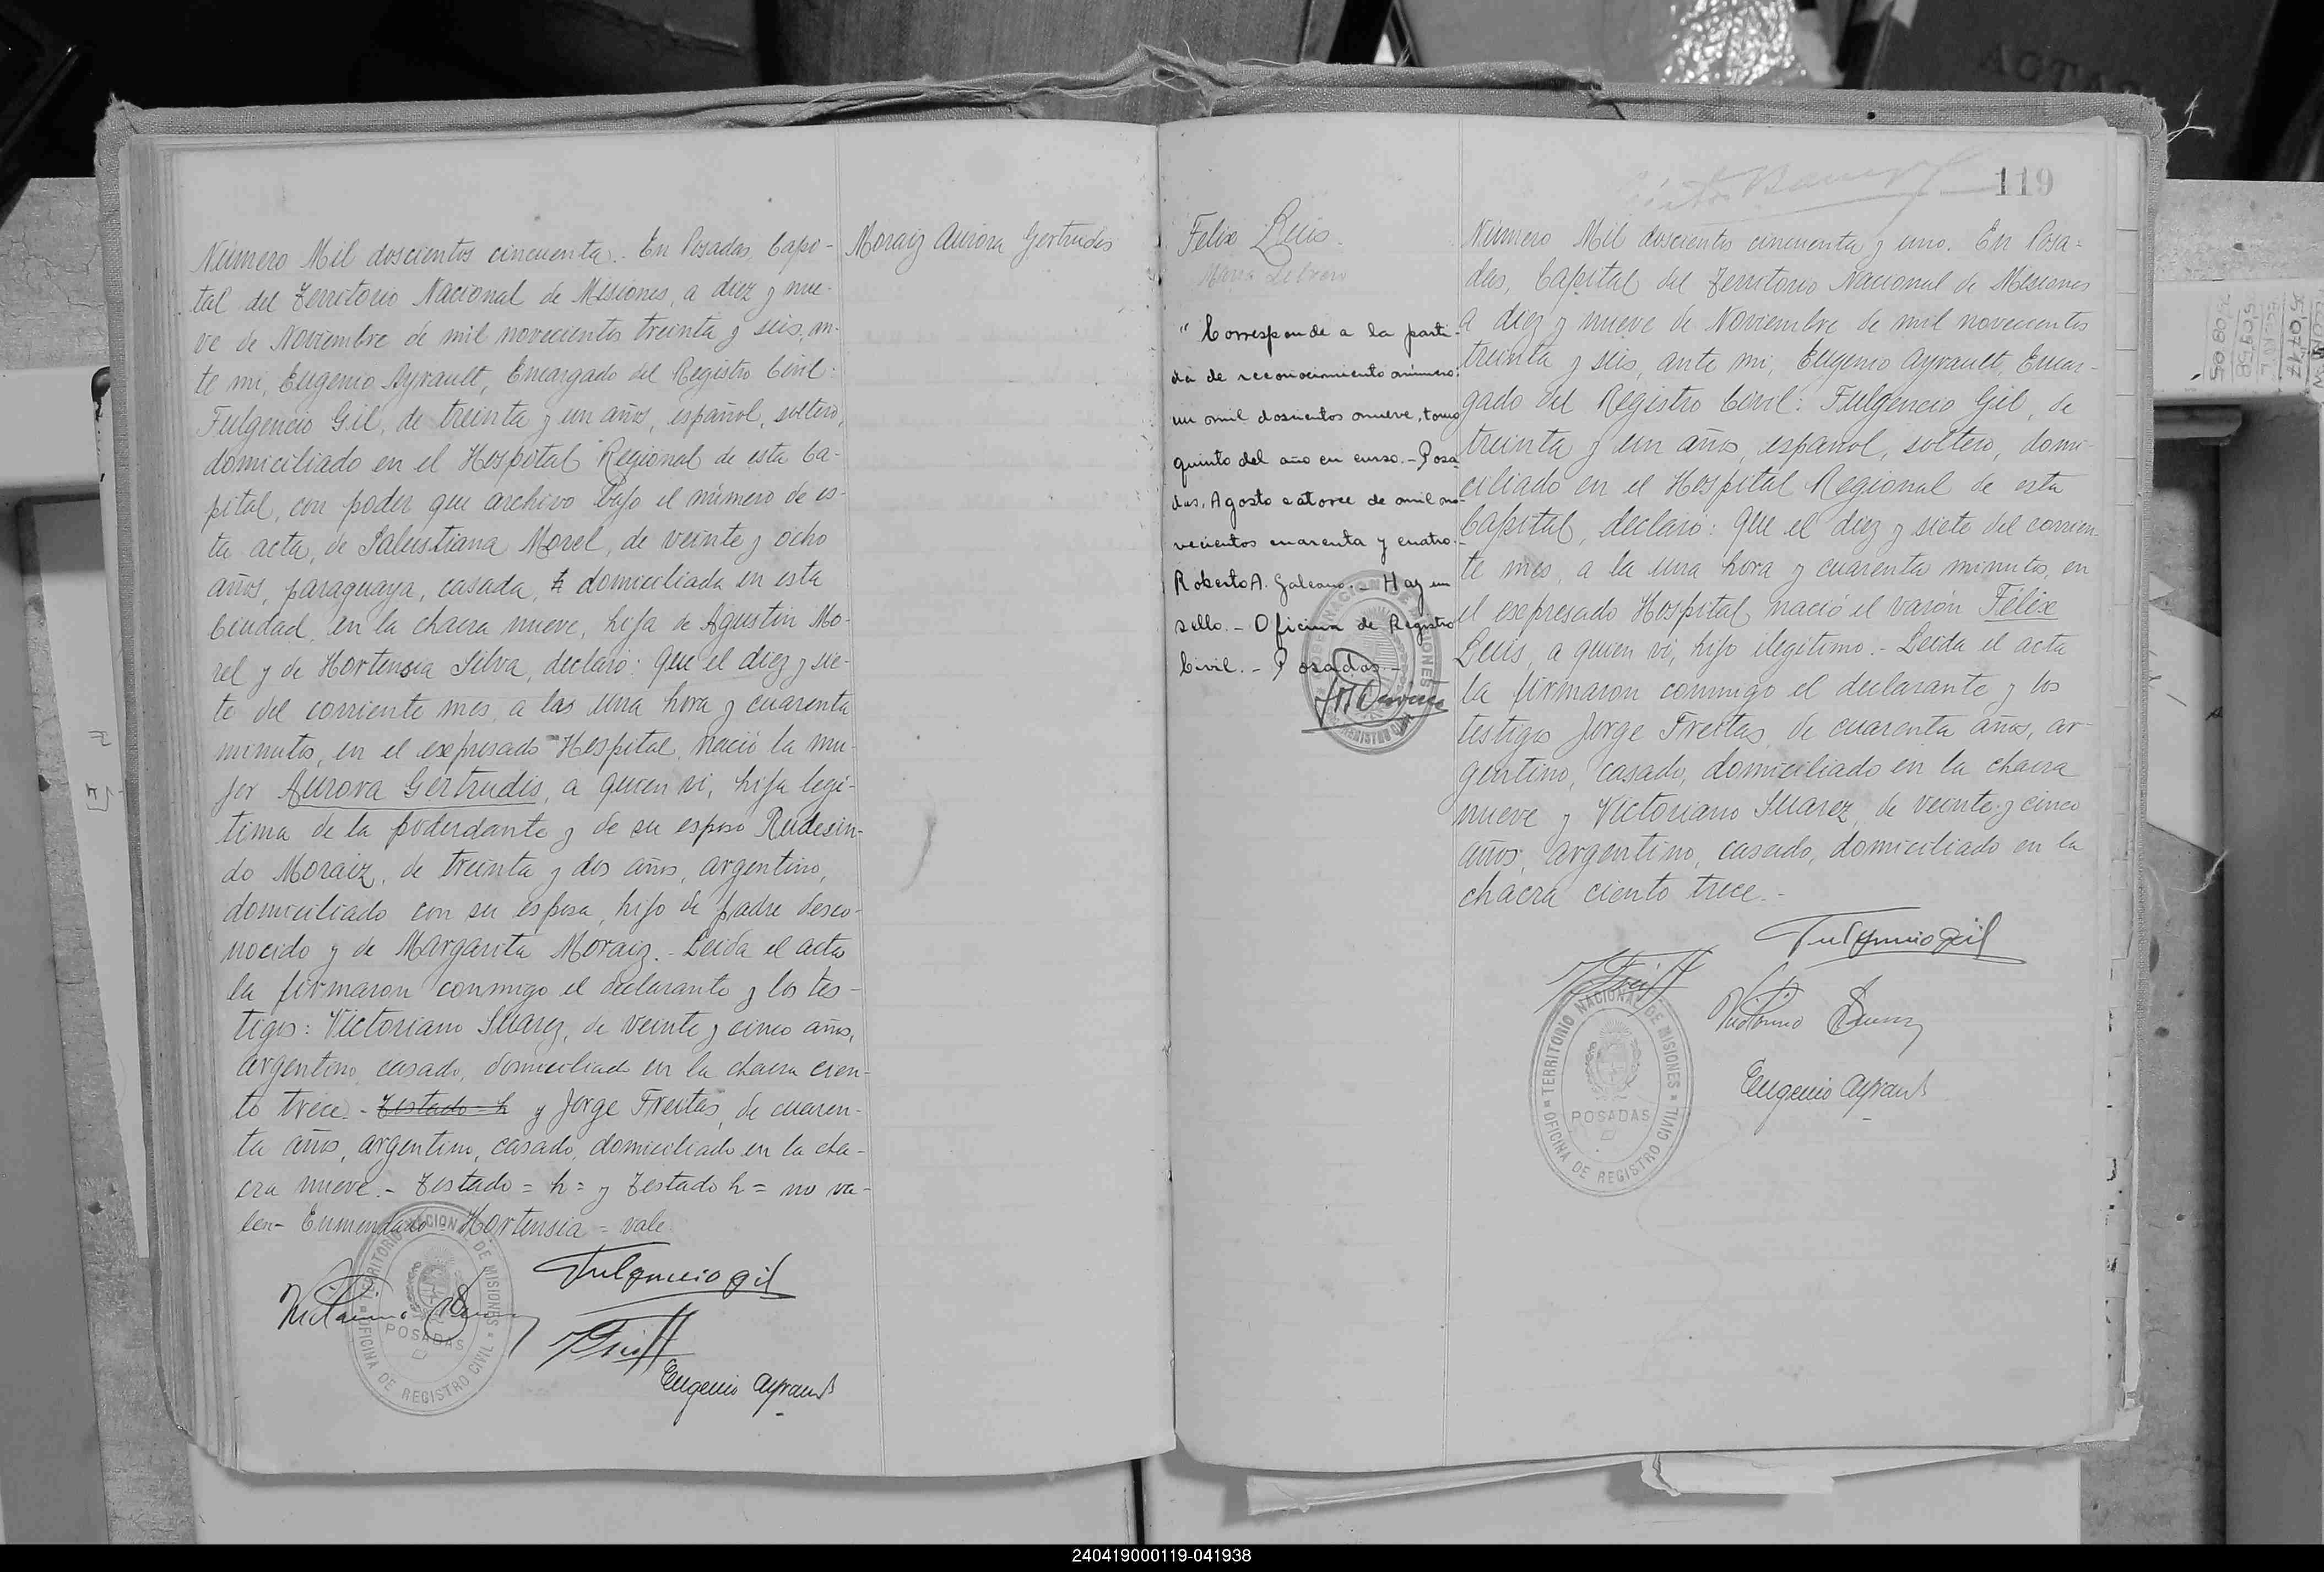 Número Mil doscientos cincuenta.- En Posadas, Capi-
tal del Territorio Nacional de Misiones, a diez y nue-
ve de Noviembre de mil novecientos treinta y seis, an-
te mi, Eugenio Ayrault, Encargado del Registro Civil:
Fulgencio Gil, de treinta y un años, español, soltero,
domiciliado en el Hospital Regional de esta Ca-
pital, con poder que archivo bajo el número de es-
ta acta, de Salustiana Morel, de veinte y ocho
años, paraguaya, casada, h domiciliada en esta
Ciudad, en la chacra nueve, hija de Agustin Mo-
rel y de Hortensia Silva, declaró: que el diez y sie-
te del corriente mes, a las una hora y cuarenta
minutos, en el expresado Hospital, nació la mu-
jer Aurora Gertrudis, a quien vi, hija legi-
tima de la poderdante y de su esposo Rudesin-
do Moraiz, de treinta y dos años, argentino,
domiciliado con su esposa, hijo de padre desco-
nocido y de Margarita Moraiz.- Leida el acta
la firmaron conmigo el declarante y los tes-
tigos: Victoriano Suarez, de veinte y cinco años,
argentino, casado, domiciliado en la chacra cien-
to trece.- Testado = h y Jorge Freitas, de cuaren-
ta años, argentino, casado, domiciliado en la cha-
cra nueve.- Testado = h = y Testado h = no va-
len- Enmendado Hortensia = vale.
Fulgencio Gil
Eugenio Ayrault
TERRITORIO NACIONAL DE MISIONES
POSADAS
OFICINA DE REGISTRO CIVIL
Moraiz Aurora Gertrudis
119
Felix Luis.
"Corresponde a la parti-
da de reconocimiento número:
un mil doscientos nueve, tomo
quinto del año en curso.- Posa
das, Agosto catorce de mil no-
vecientos cuarenta y cuatro.-
Roberto A. Galeano.- Hay un
sello.- Oficina de Registro
Civil.- Posadas.-
Número Mil doscientos cincuenta y uno. En Posa-
das, Capital del Territorio Nacional de Misiones
a diez y nueve de Noviembre de mil novecientos
treinta y seis, ante mi, Eugenio Ayrault, Encar-
gado del Registro Civil: Fulgencio Gil, de
treinta y un años, español, soltero, domi-
ciliado en el Hospital Regional de esta
Capital, declaró: que el diez y siete del corrien-
te mes, a la una hora y cuarenta minutos, en
el expresado Hospital, nació el varón Félix
Luis, a quien vi, hijo ilegitimo.- Leida el acta
la firmaron conmigo el declarante y los
testigos Jorge Freitas, de cuarenta años, ar-
gentino, casado, domiciliado en la chacra
nueve y Victoriano Suarez, de veinte y cinco
años, argentino, casado, domiciliado en la
chacra ciento trece.-
Fulgencio Gil
Eugenio Ayrault
TERRITORIO NACIONAL DE MISIONES
POSADAS
OFICINA DE REGISTRO CIVIL
240419000119-041938